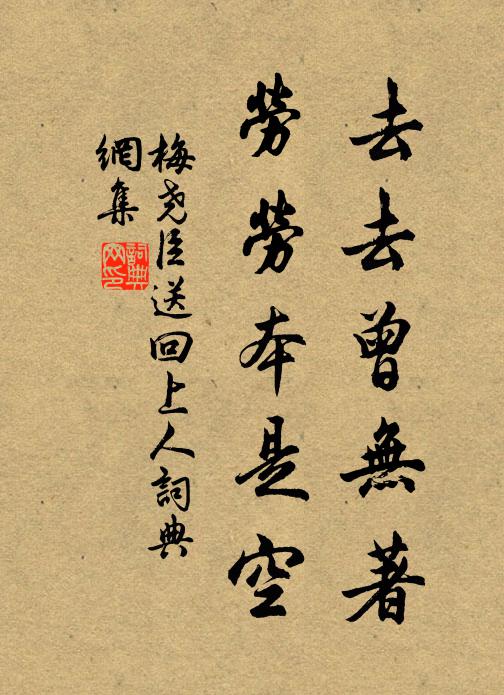 去去曾無著
勞勞本是空
梅堯臣送回上人詞典
網集
詞典
网印